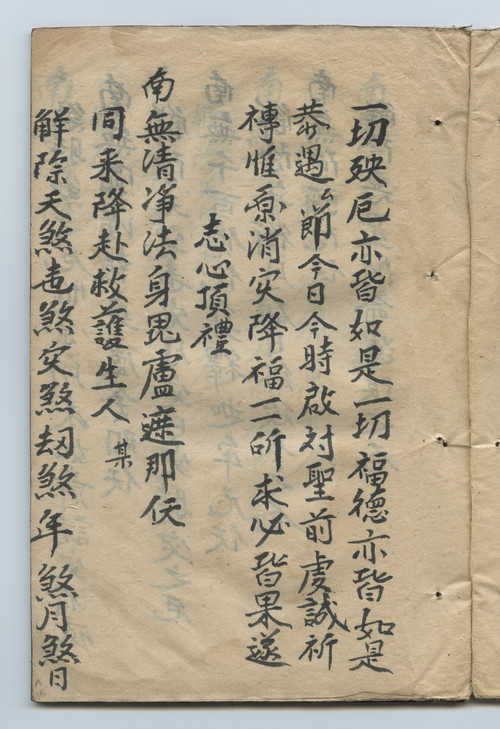 一切殃厄亦皆如是一切福德亦皆如是
恭遇厶節今日今時啟对聖前虔誠祈
禱惟奈消灾降福一二所求必皆果遂
志心頂禮
南無清净法身毘盧遮那仸
同来降赴救護生人 某
觧除天煞地煞灾煞劫煞年煞月煞日